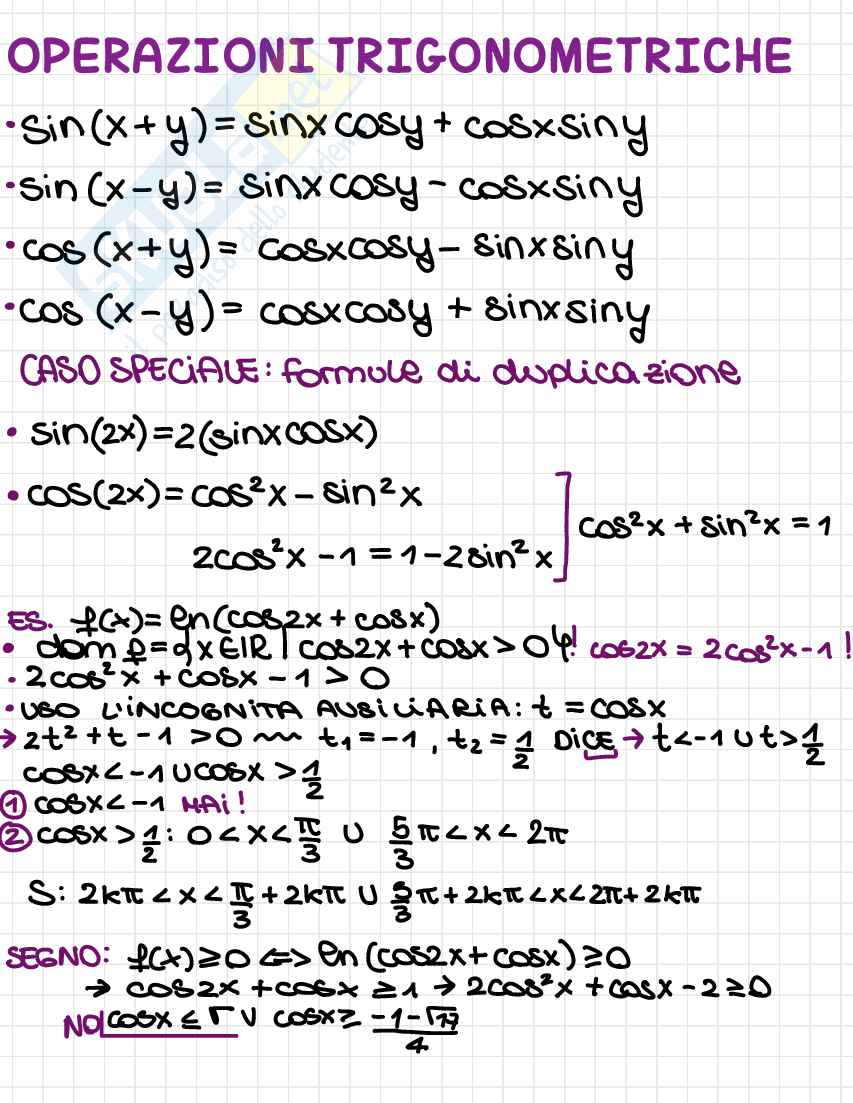 OPERAZIONI TRIGONOMETRICHE
• sin(x+y)= sinxcosy + cosxsiny
• sin(x-y)= sinxcosy - cosxsiny
• cos(x+y)= cosxcosy - sinxsiny
• cos(x-y)= cosxcosy + sinxsiny
CASO SPECIALE: formule di duplicazione
• sin(2x)=2(sinxcosx)
• cos(2x)= cos²x - sin²x
2cos²x -1 = 1-2sin²x ] cos²x + sin²x = 1
ES. f(x)= ln(cos2x + cosx)
• dom f = {x∈IR | cos2x + cosx > 0} ! cos2x = 2cos²x-1 !
• 2cos²x + cosx - 1 > 0
• USO L'INCOGNITA AUSILIARIA: t = cosx
→ 2t² + t - 1 > 0 〰 t₁ = -1 , t₂ = 1/2 DICE → t < -1 ∪ t > 1/2
cosx < -1 ∪ cosx > 1/2
① cosx < -1 MAI!
② cosx > 1/2 : 0 < x < π/3 ∪ 5/3 π < x < 2π
S: 2kπ < x < π/3 + 2kπ ∪ 5/3 π + 2kπ < x < 2π + 2kπ
SEGNO: f(x) ≥ 0 <=> ln(cos2x + cosx) ≥ 0
→ cos2x + cosx ≥ 1 → 2cos²x + cosx - 2 ≥ 0
NO cosx ≤ √ ∪ cosx ≥ (-1-√17)/4
SKUOLA.net